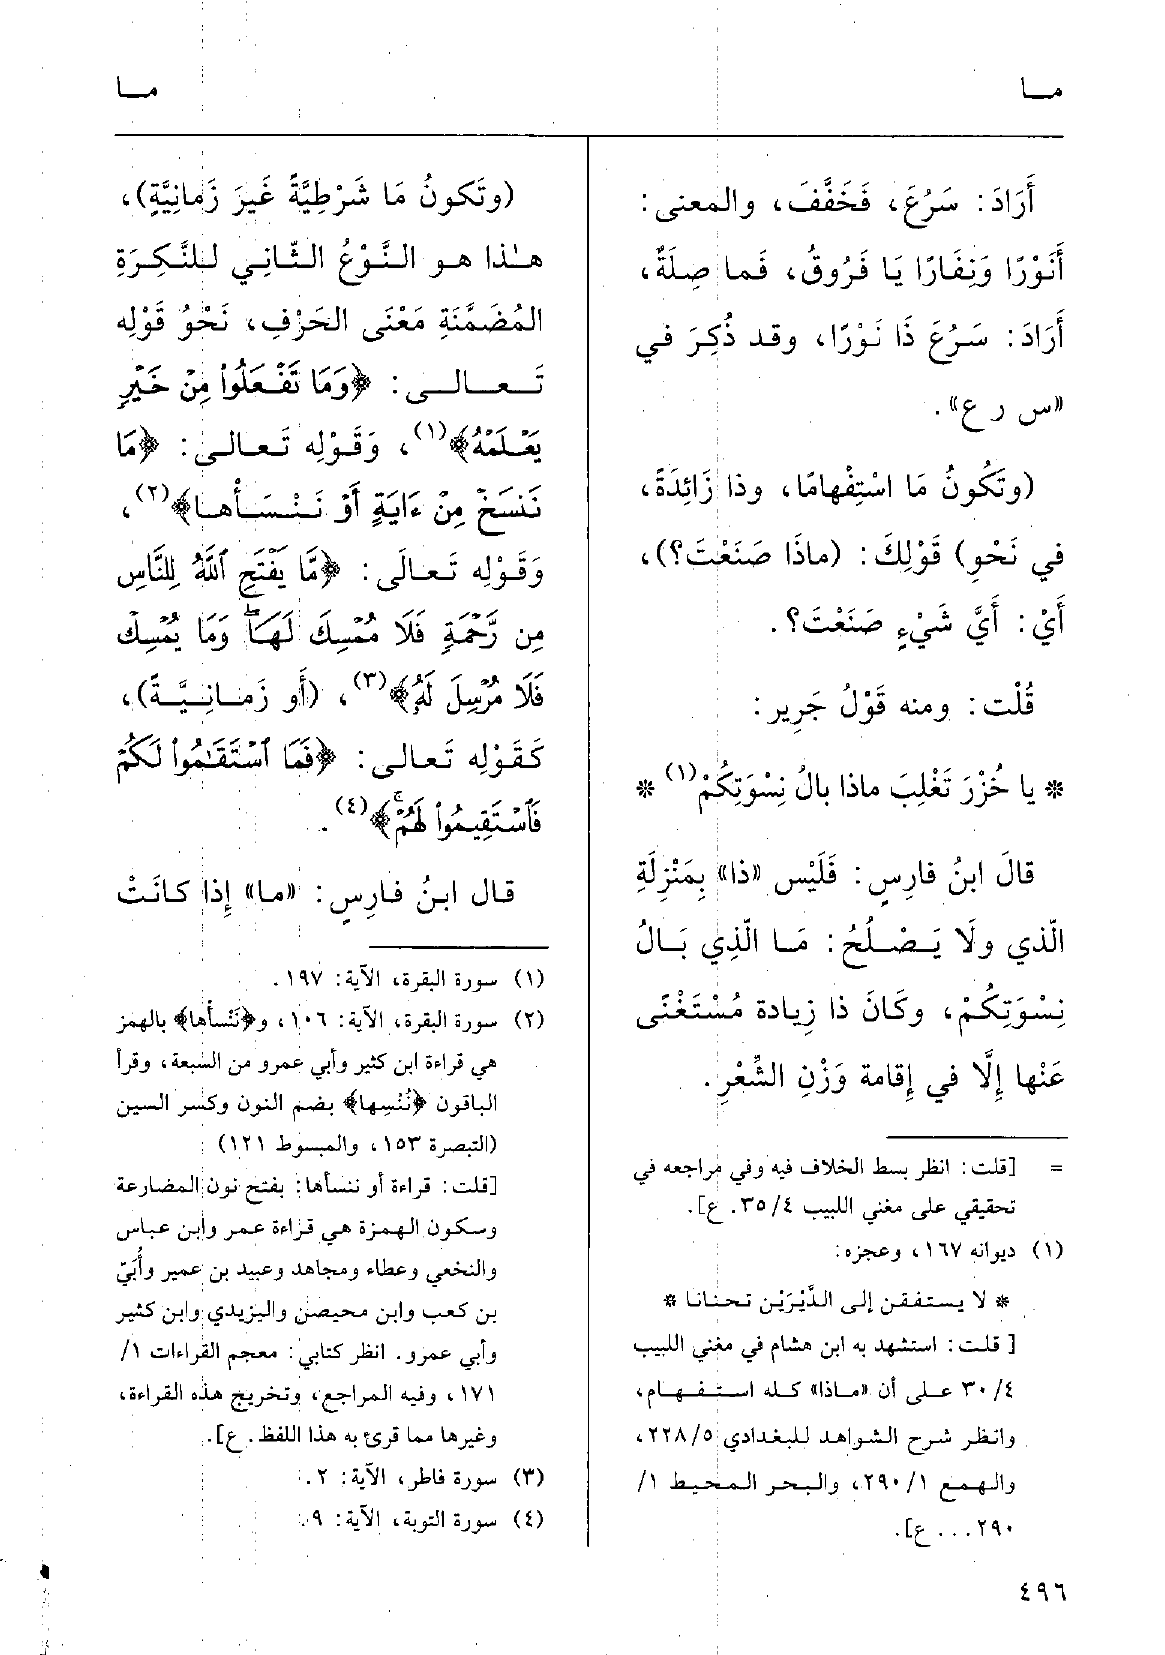 مـا
مـا
أَرَادَ: سَرُعَ، فَخَفَّفَ، والمعنى:
أَنَوْرًا وَنِفَارًا يَا فَرُوقُ، فَما صِلَةٌ،
أَرَادَ: سَرُعَ ذَا نَوْرًا، وقد ذُكِرَ في
«س ر ع».
(وتَكُونُ مَا اسْتِفْهامًا، وذا زَائِدَةً،
في نَحْوِ) قَوْلِكَ: (ماذَا صَنَعْتَ؟)،
أَيْ: أَيَّ شَيْءٍ صَنَعْتَ؟.
قُلْت: ومنه قَوْلُ جَرِير:
* يا خُزْرَ تَغْلِبَ ماذا بالُ نِسْوَتِكُمْ(١) *
قالَ ابنُ فارِسٍ: فَلَيْس «ذا» بِمَنْزِلَةِ
الّذي ولَا يَصْلُحُ: مَا الّذِي بَالُ
نِسْوَتِكُمْ، وكَانَ ذا زِيادة مُسْتَغْنًى
عَنْها إِلَّا في إِقامة وَزْنِ الشِّعْرِ.
= [قلت: انظر بسط الخلاف فيه وفي مراجعه في
تحقيقي على مغني اللبيب ٣٥/٤. ع].
(١) ديوانه ١٦٧، وعجزه:
* لا يستفقن إلى الدَّيْرَيْن تحنانا *
[قلت: استشهد به ابن هشام في مغني اللبيب
٣٠/٤ على أن «ماذا» كله استفهام،
وانظر شرح الشواهد للبغدادي ٢٢٨/٥،
والهمع ٢٩٠/١، والبحر المحيط ١/
٢٩٠... ع].
(وتَكونُ مَا شَرْطِيَّةً غَيرَ زَمَانِيَّةٍ)،
هٰذا هو النَّوْعُ الثّانِي لِلنَّكِرَةِ
المُضَمَّنَةِ مَعْنَى الحَرْفِ، نَحْوُ قَوْلِه
تَعالى: ﴿وَمَا تَفْعَلُوا۟ مِنْ خَيْرٍ
يَعْلَمْهُ﴾(١)، وَقَوْلِه تَعالى: ﴿مَا
نَنسَخْ مِنْ ءَايَةٍ أَوْ نَنْسَأْها﴾(٢)،
وَقَوْلِه تَعالَى: ﴿مَّا يَفْتَحِ ٱللَّهُ لِلنَّاسِ
مِن رَّحْمَةٍ فَلَا مُمْسِكَ لَهَا ۖ وَمَا يُمْسِكْ
فَلَا مُرْسِلَ لَهُۥ﴾(٣)، (أَو زَمانِيَّةً)،
كَقَوْلِه تَعالى: ﴿فَمَا ٱسْتَقَـٰمُوا۟ لَكُمْ
فَٱسْتَقِيمُوا۟ لَهُمْ ۚ﴾(٤).
قال ابنُ فارِسٍ: «ما» إِذا كانَتْ
(١) سورة البقرة، الآية: ١٩٧.
(٢) سورة البقرة، الآية: ١٠٦، و﴿نَنْسأها﴾ بالهمز
هي قراءة ابن كثير وأبي عمرو من السبعة، وقرأ
الباقون ﴿نُنْسِها﴾ بضم النون وكسر السين
(التبصرة ١٥٣، والمبسوط ١٢١)
[قلت: قراءة أو ننسأها: بفتح نون المضارعة
وسكون الهمزة هي قراءة عمر وابن عباس
والنخعي وعطاء ومجاهد وعبيد بن عمير وأُبَيّ
بن كعب وابن محيصن واليزيدي وابن كثير
وأبي عمرو. انظر كتابي: معجم القراءات ١/
١٧١، وفيه المراجع، وتخريج هذه القراءة،
وغيرها مما قرئ به هذا اللفظ. ع].
(٣) سورة فاطر، الآية: ٢.
(٤) سورة التوبة، الآية: ٩.
٤٩٦